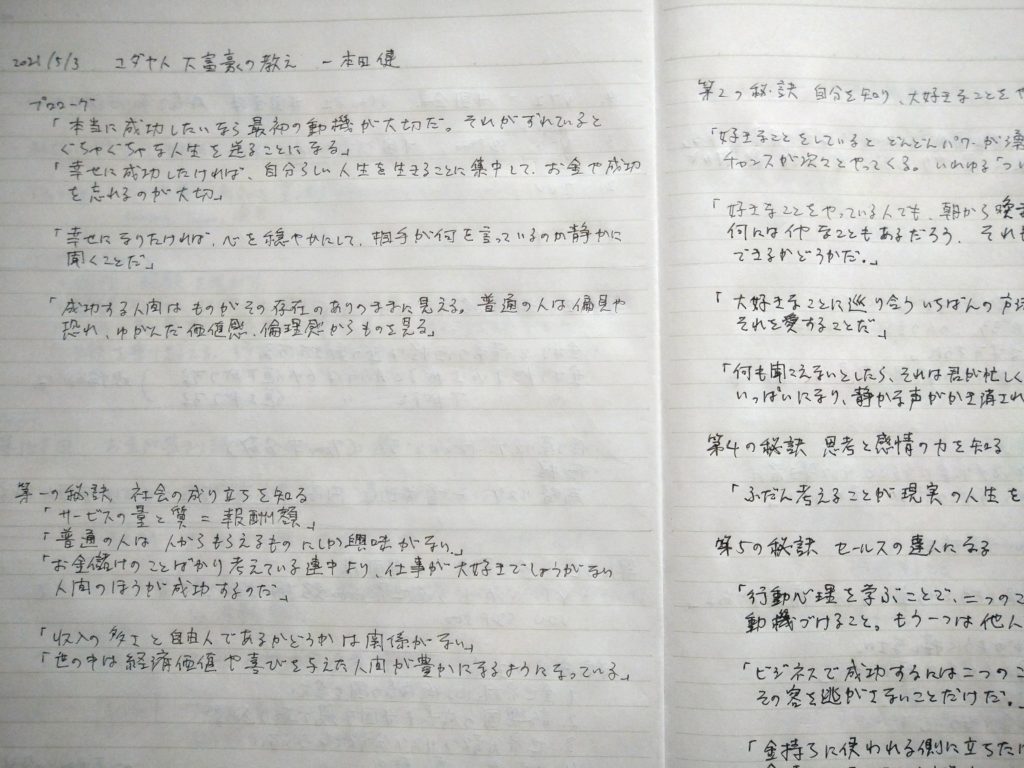 2021/5/3 ユダヤ人大富豪の教え ー本田健
プロローグ
「本当に成功したいなら最初の動機が大切だ。それがずれていると
ぐちゃぐちゃな人生を送ることになる」
「幸せに成功したければ、自分らしい人生を生きることに集中して、お金や成功
を忘れるのが大切」
「幸せになりたければ、心を穏やかにして、相手が何を言っているのか静かに
聞くことだ」
「成功する人間はものがその存在のありのままに見える。普通の人は偏見や
恐れ、ゆがんだ価値感、倫理感からものを見る」
第一の秘訣 社会の成り立ちを知る
「サービスの量と質=報酬額」
「普通の人は人からもらえるものにしか興味がない」
「お金儲けのことばかり考えている連中より、仕事が大好きでしょうがない
人間のほうが成功するのだ」
「収入の多さと自由人であるかどうかは関係がない」
「世の中は経済価値や喜びを与えた人間が豊かになるようになっている」
第2の秘訣 自分を知り、大好きなことをや
「好きなことをしていると どんどんパワーが
チャンスが次々とやってくる。いわゆる「つい
「好きなことをやっている人でも、朝から晩ま
何にはイヤなこともあるだろう。それも
できるかどうかだ。」
「大好きなことに巡り合ういちばんの
それを愛することだ」
「何も聞こえないとしたら、それは君が忙しく
いっぱいになり、静かな声がかき消され
第4の秘訣 思考と感情の力を知る
「ふだん考えることが現実の人生を
第5の秘訣 セールスの達人になる
「行動心理を学ぶことで、二つのこ
動機づけること。もう一つは他人
「ビジネスで成功するには二つのこ
その客を逃がさないことだけだ。」
「金持ちに使われる側に立ちたけ